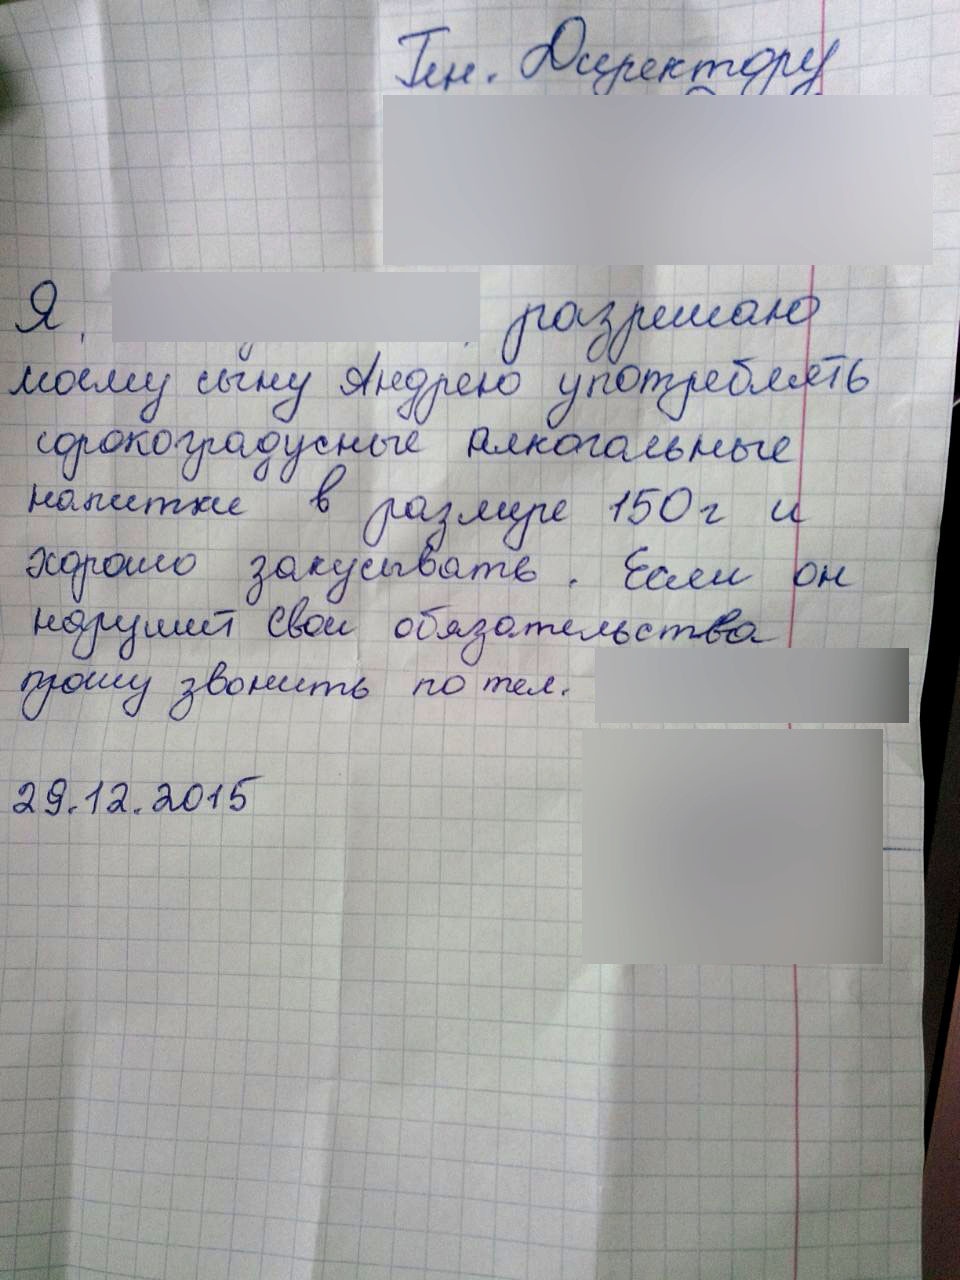 Ген. Директору
Я, , разрешаю
моему сыну Андрею употреблять
сорокоградусные алкогальные
напитки в размере 150 г и
хорошо закусывать. Если он
нарушит свои обязательства
прошу звонить по тел.
29.12.2015